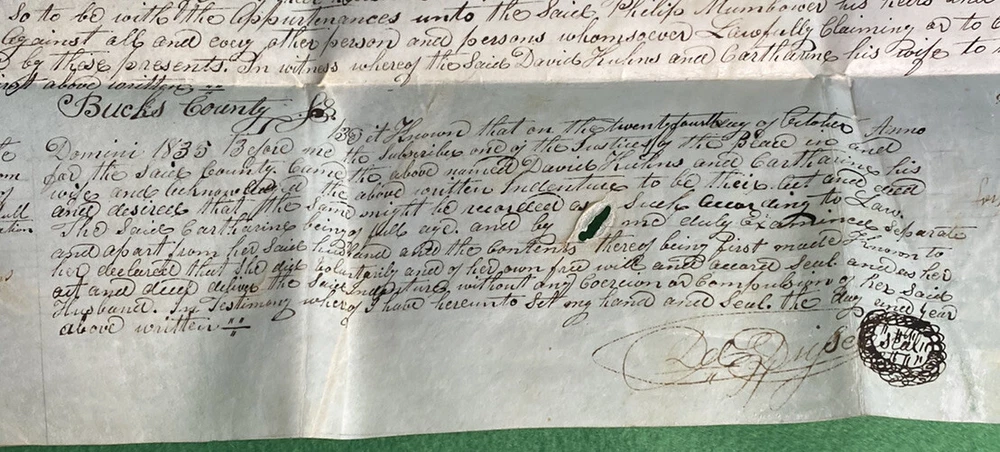 So to be with the appurtenances unto the Said Philip Mumbower his heirs and
Against all and every other person and persons whomsoever Lawfully Claiming or to
by these presents. In witness whereof the Said David Kulins and Cartharine his wife to
above written
Bucks County Ss
Be it Known that on the twenty fourth day of October Anno
Domini 1835 Before me the Subscriber one of the Justices of the Peace in and
for the Said County. Came the above named David Kulins and Cartharine his
wife and acknowledged the above written Indenture to be their act and deed
and desired that the Same might be recorded as Such according to Law.
The Said Cartharine being of full age. and by me duly Examined Separate
and apart from her Said husband and the Contents thereof being first made Known to
her declared that She did Voluntarily and of her own free will and accord Seal and as her
act and deed deliver the Said Indenture without any Coercion or Compulsion of her Said
Husband. In Testimony whereof I have hereunto Set my hand and Seal. the day and year
above written
Seal